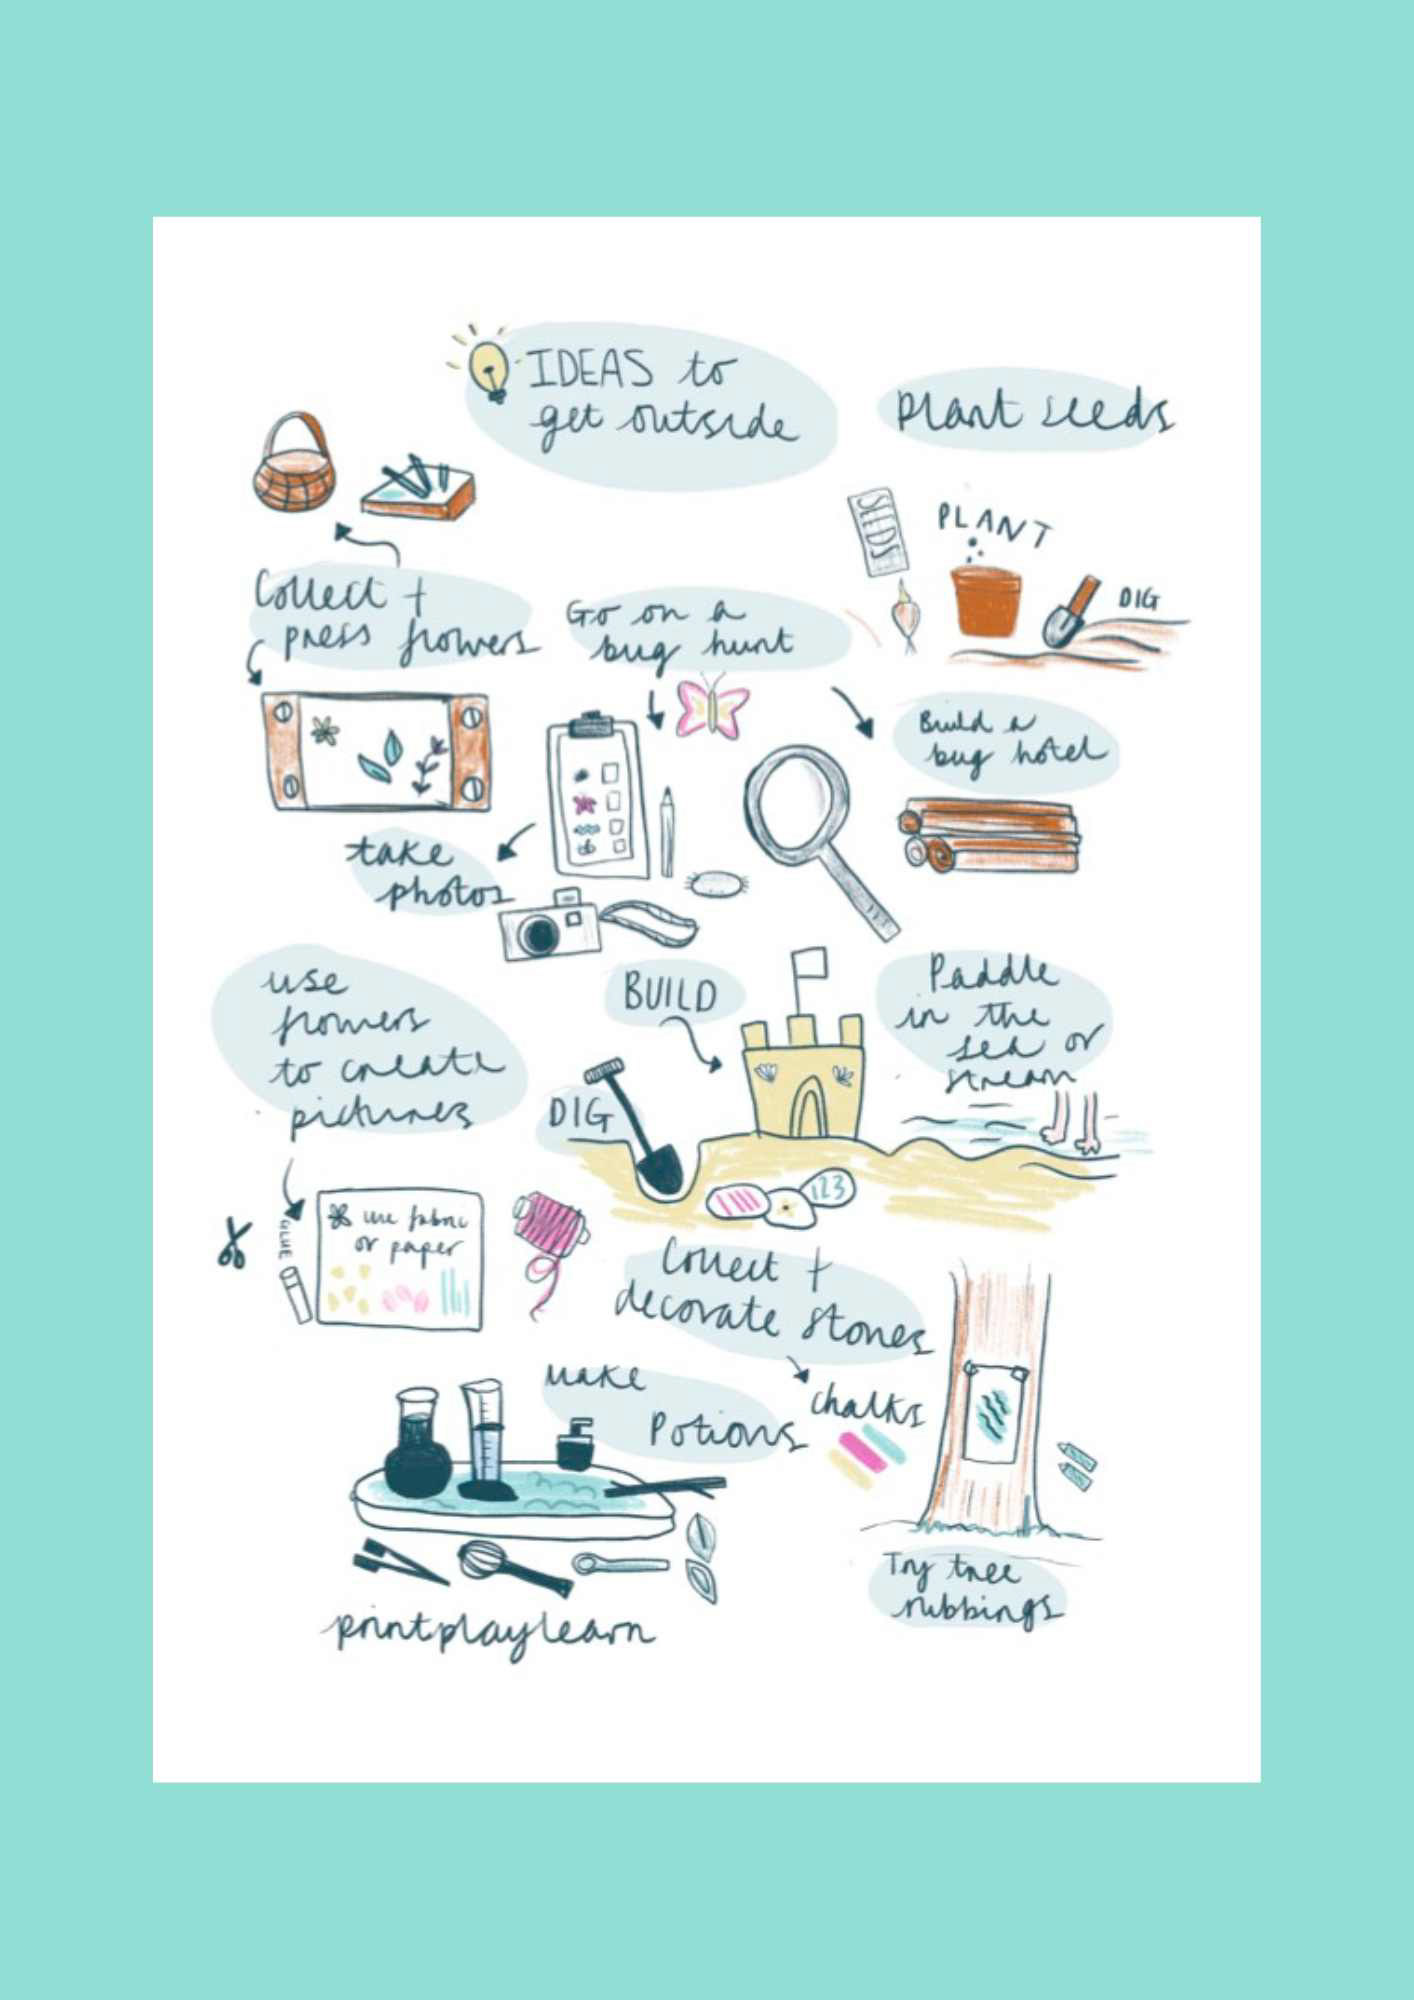 IDEAS to
get outside
Plant seeds
SEEDS
PLANT
DIG
Collect +
press flowers
Go on a
bug hunt
Build a
bug hotel
take
photos
use
flowers
to create
pictures
BUILD
DIG
Paddle
in the
sea or
stream
123
GLUE
use fabric
or paper
Collect +
decorate stones
chalks
Make
Potions
Try tree
rubbings
printplaylearn